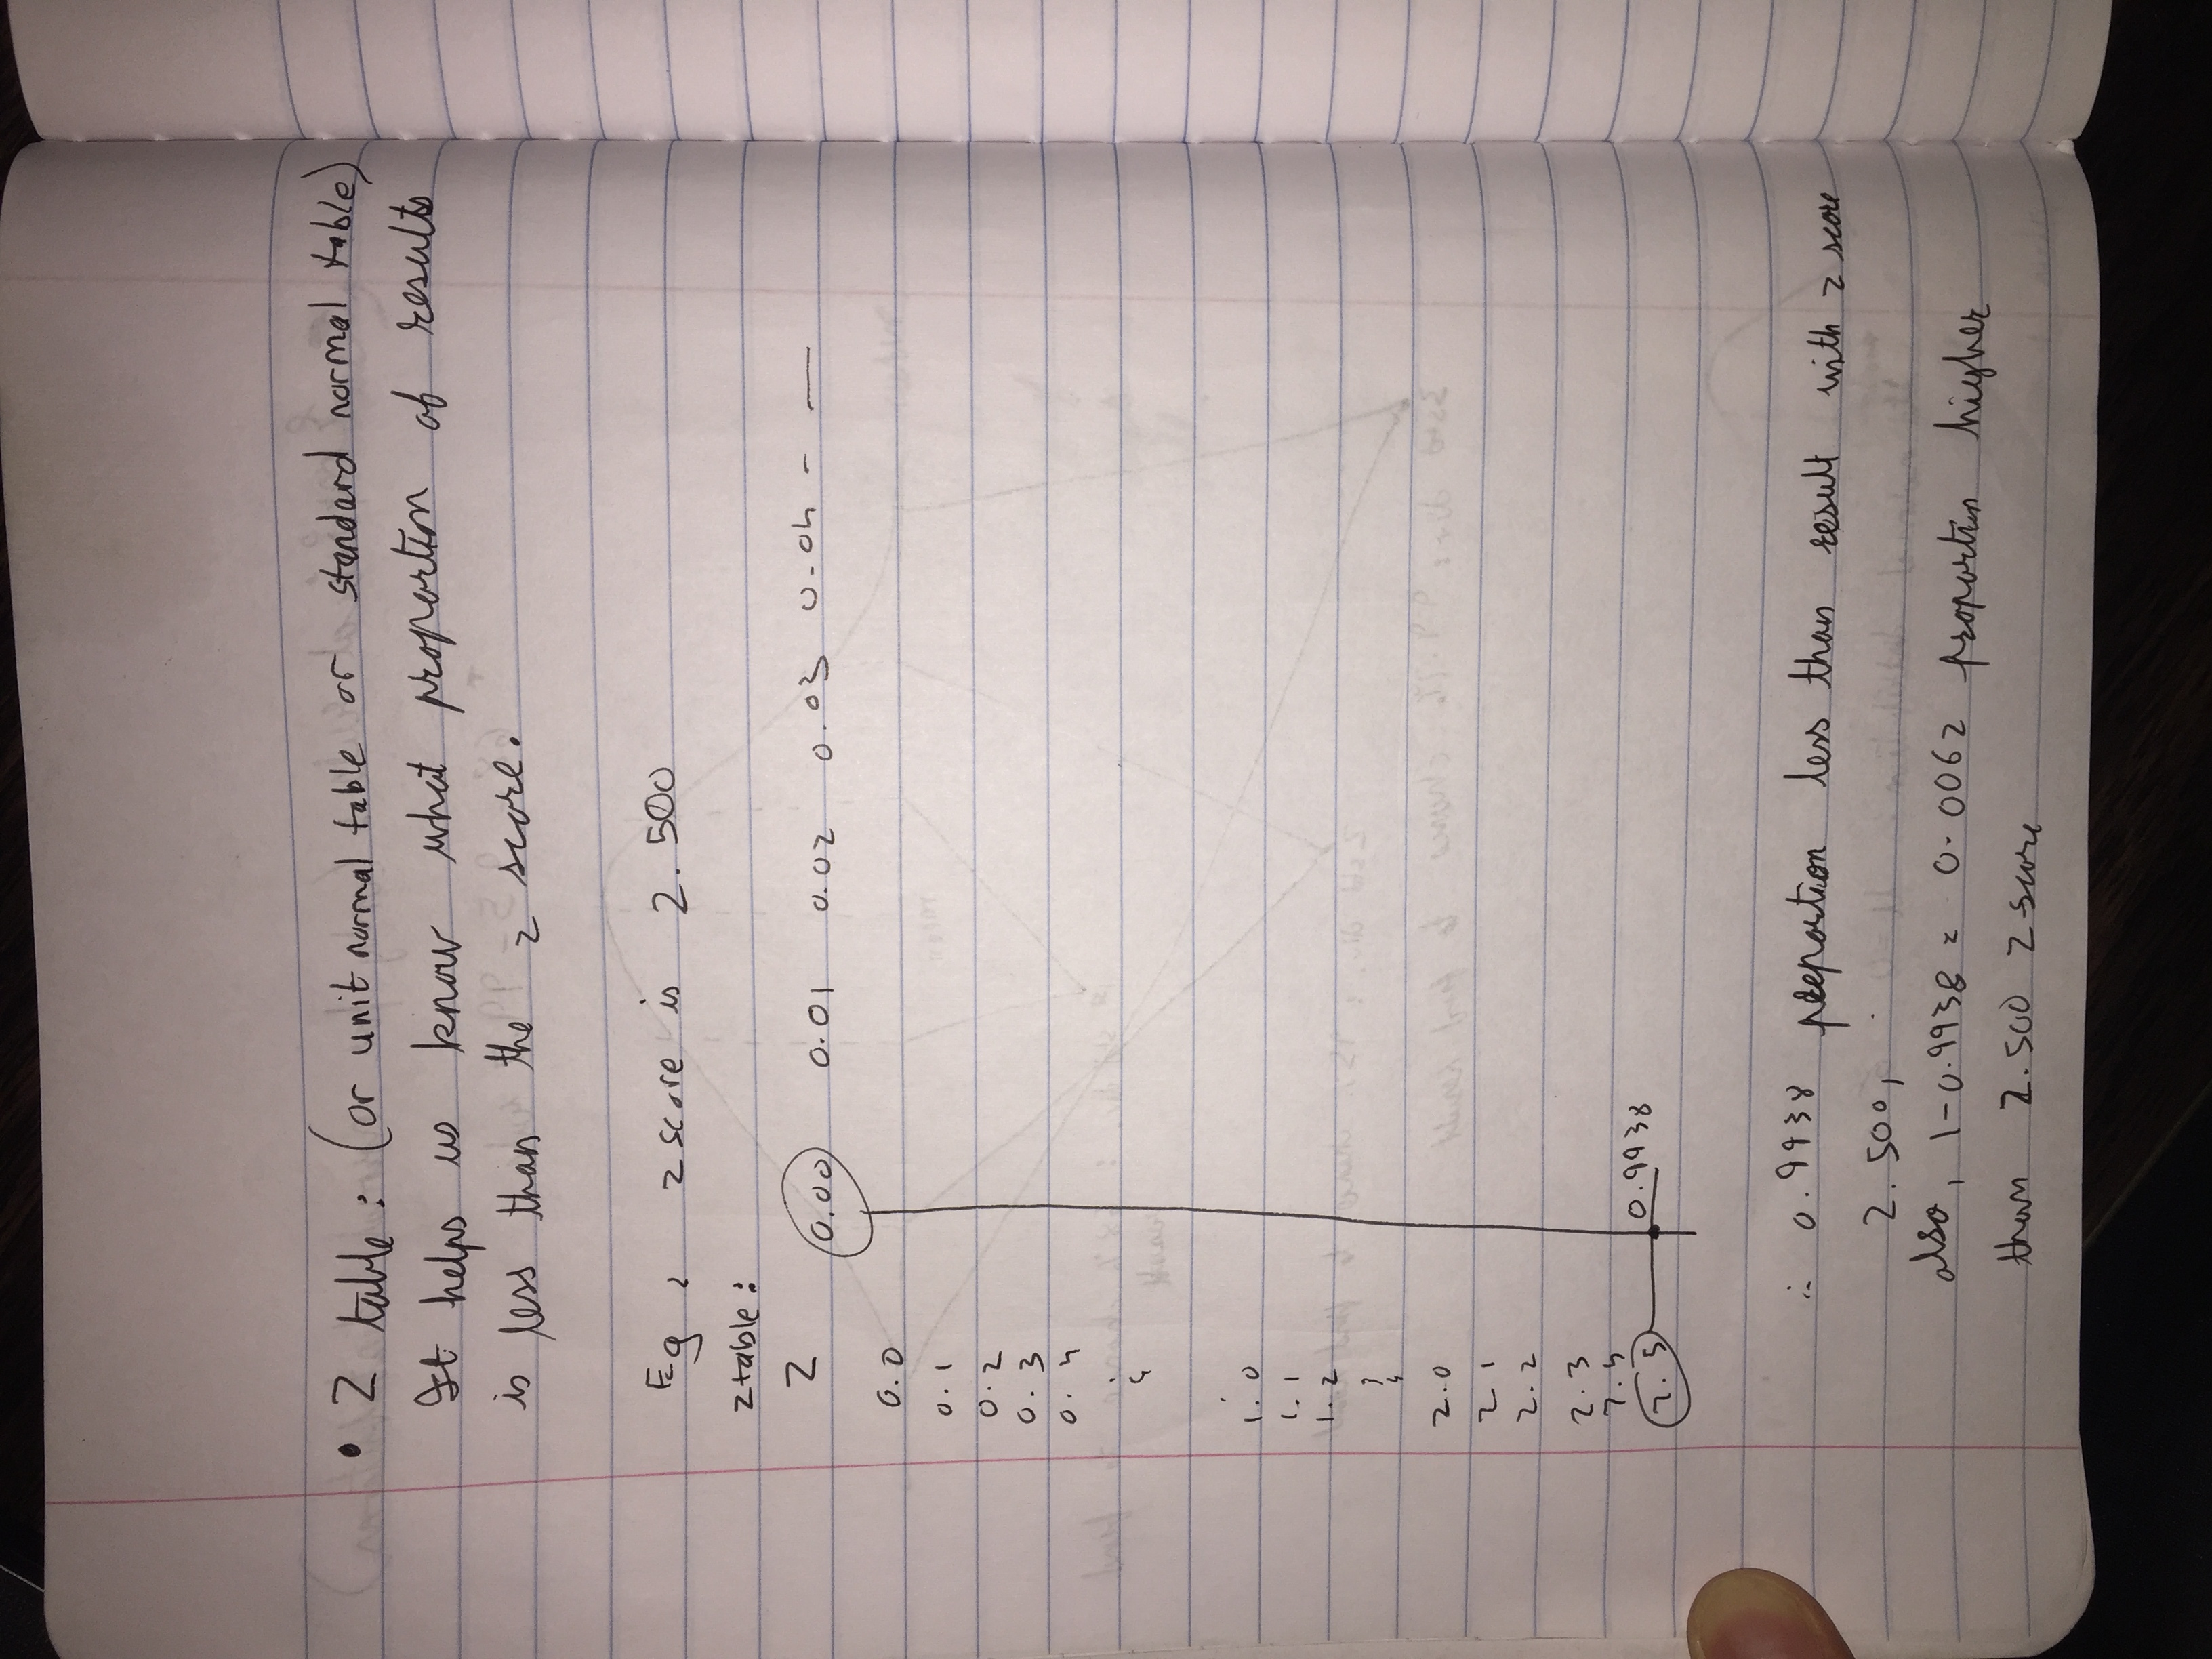 • Z table: (or unit normal table or standard normal table)
It helps us know what proportion of results
is less than the z score.
Eg, z score is 2.500
z table:
Z 0.00 0.01 0.02 0.03 0.04 - —
0.0
0.1
0.2
0.3
0.4
1.0
1.1
1.2
2.0
2.1
2.2
2.3
2.4
2.5 0.9938
∴ 0.9938 proportion less than result with z score
2.500,
also, 1-0.9938 = 0.0062 proportion higher
than 2.500 z score